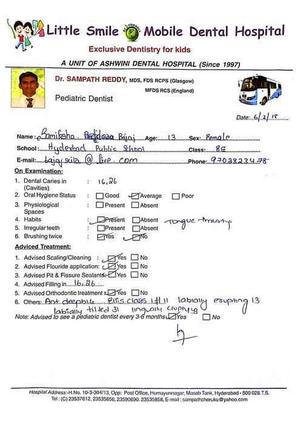 Little Smile Mobile Dental Hospital
Exclusive Dentistry for kids
A UNIT OF ASHWINI DENTAL HOSPITAL (Since 1997)
Dr. SAMPATH REDDY, MDS, FDS RCPS (Glasgow)
MFDS RCS (England)
Pediatric Dentist
Date: 6/2/18
Name: Bajaj Age: 13 Sex: Female
School: Hyderabad Public School Class: 8G
E-mail: Phone:
On Examination:
1. Dental Caries in (Cavities) : 16,26
2. Oral Hygiene Status : Good Average Poor
3. Physiological Spaces : Present Absent
4. Habits : Present Absent Tongue thrusting
5. Irregular teeth : Present Absent
6. Brushing twice : Yes No
Adviced Treatment:
1. Advised Scaling/Cleaning : Yes No
2. Advised Flouride application : Yes No
3. Advised Pit & Fissure Sealants Yes No
4. Advised Filling in 16,26
5. Advised Orthodontic treatment Yes No
6. Others: Ant deepbite class labially erupting 13
labially tilted 31 lingually
Note: Advised to see a pediatric dentist every 3-6 months Yes No
Hospital Address: H.No. 10-3-304/13, Opp: Post Office, Humayunnagar, Masab Tank, Hyderabad - 500 028 T.S.
Tel: (C) 23537612, 23535656, 23590690, 23535858. E-mail : sampathcheruku@yahoo.com